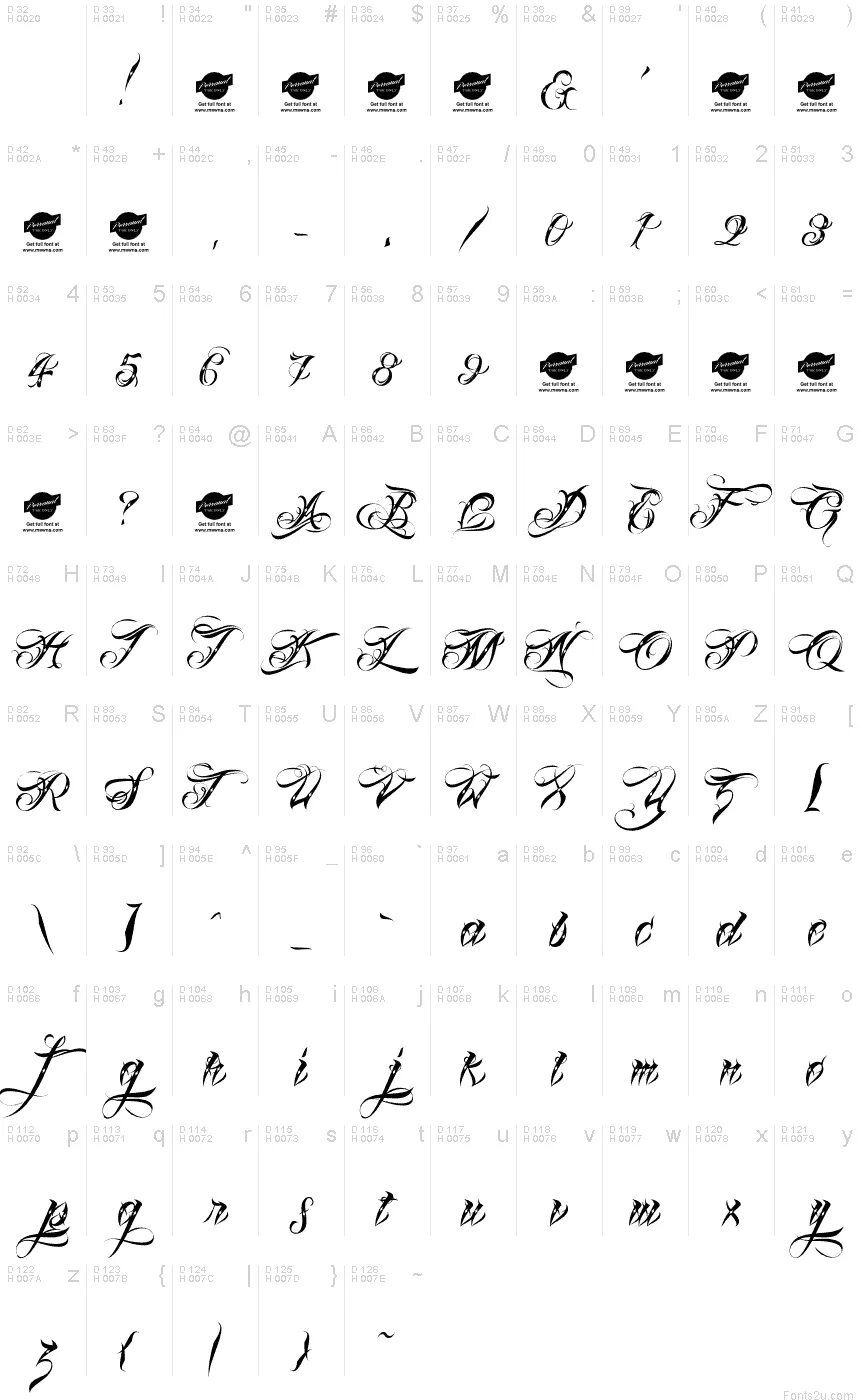 D 32 D 33 ! D 34 " D 35 # D 36 $ D 37 % D 38 & D 39 ' D 40 ( D 41 )
H 0020 H 0021 H 0022 H 0023 H 0024 H 0025 H 0026 H 0027 H 0028 H 0029
! Personal Personal Personal Personal & ' Personal Personal
USE ONLY USE ONLY USE ONLY USE ONLY USE ONLY USE ONLY
Get full font at Get full font at Get full font at Get full font at Get full font at Get full font at
www.mwwna.com www.mwwna.com www.mwwna.com www.mwwna.com www.mwwna.com www.mwwna.com
D 42 * D 43 + D 44 , D 45 - D 46 . D 47 / D 48 0 D 49 1 D 50 2 D 51 3
H 002A H 002B H 002C H 002D H 002E H 002F H 0030 H 0031 H 0032 H 0033
Personal Personal , - . / 0 1 2 3
USE ONLY USE ONLY
Get full font at Get full font at
www.mwwna.com www.mwwna.com
D 52 4 D 53 5 D 54 6 D 55 7 D 56 8 D 57 9 D 58 : D 59 ; D 60 < D 61 =
H 0034 H 0035 H 0036 H 0037 H 0038 H 0039 H 003A H 003B H 003C H 003D
4 5 6 7 8 9 Personal Personal Personal Personal
USE ONLY USE ONLY USE ONLY USE ONLY
Get full font at Get full font at Get full font at Get full font at
www.mwwna.com www.mwwna.com www.mwwna.com www.mwwna.com
D 62 > D 63 ? D 64 @ D 65 A D 66 B D 67 C D 68 D D 69 E D 70 F D 71 G
H 003E H 003F H 0040 H 0041 H 0042 H 0043 H 0044 H 0045 H 0046 H 0047
Personal ? Personal A B C D E F G
USE ONLY USE ONLY
Get full font at Get full font at
www.mwwna.com www.mwwna.com
D 72 H D 73 I D 74 J D 75 K D 76 L D 77 M D 78 N D 79 O D 80 P D 81 Q
H 0048 H 0049 H 004A H 004B H 004C H 004D H 004E H 004F H 0050 H 0051
H I J K L M N O P Q
D 82 R D 83 S D 84 T D 85 U D 86 V D 87 W D 88 X D 89 Y D 90 Z D 91 [
H 0052 H 0053 H 0054 H 0055 H 0056 H 0057 H 0058 H 0059 H 005A H 005B
R S T U V W X Y Z [
D 92 \ D 93 ] D 94 ^ D 95 _ D 96 ` D 97 a D 98 b D 99 c D 100 d D 101 e
H 005C H 005D H 005E H 005F H 0060 H 0061 H 0062 H 0063 H 0064 H 0065
\ ] ^ _ ` a b c d e
D 102 f D 103 g D 104 h D 105 i D 106 j D 107 k D 108 l D 109 m D 110 n D 111 o
H 0066 H 0067 H 0068 H 0069 H 006A H 006B H 006C H 006D H 006E H 006F
f g h i j k l m n o
D 112 p D 113 q D 114 r D 115 s D 116 t D 117 u D 118 v D 119 w D 120 x D 121 y
H 0070 H 0071 H 0072 H 0073 H 0074 H 0075 H 0076 H 0077 H 0078 H 0079
p q r s t u v w x y
D 122 z D 123 { D 124 | D 125 } D 126 ~
H 007A H 007B H 007C H 007D H 007E
z { | } ~
Fonts2u.com